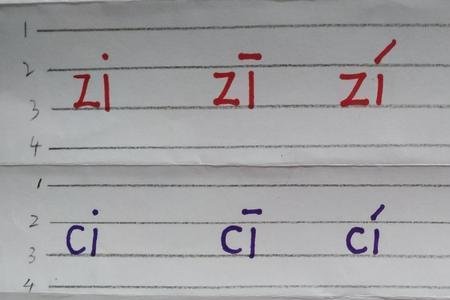 1
2 zi zī zí
3
4
1
2
3 ci cī cí
4